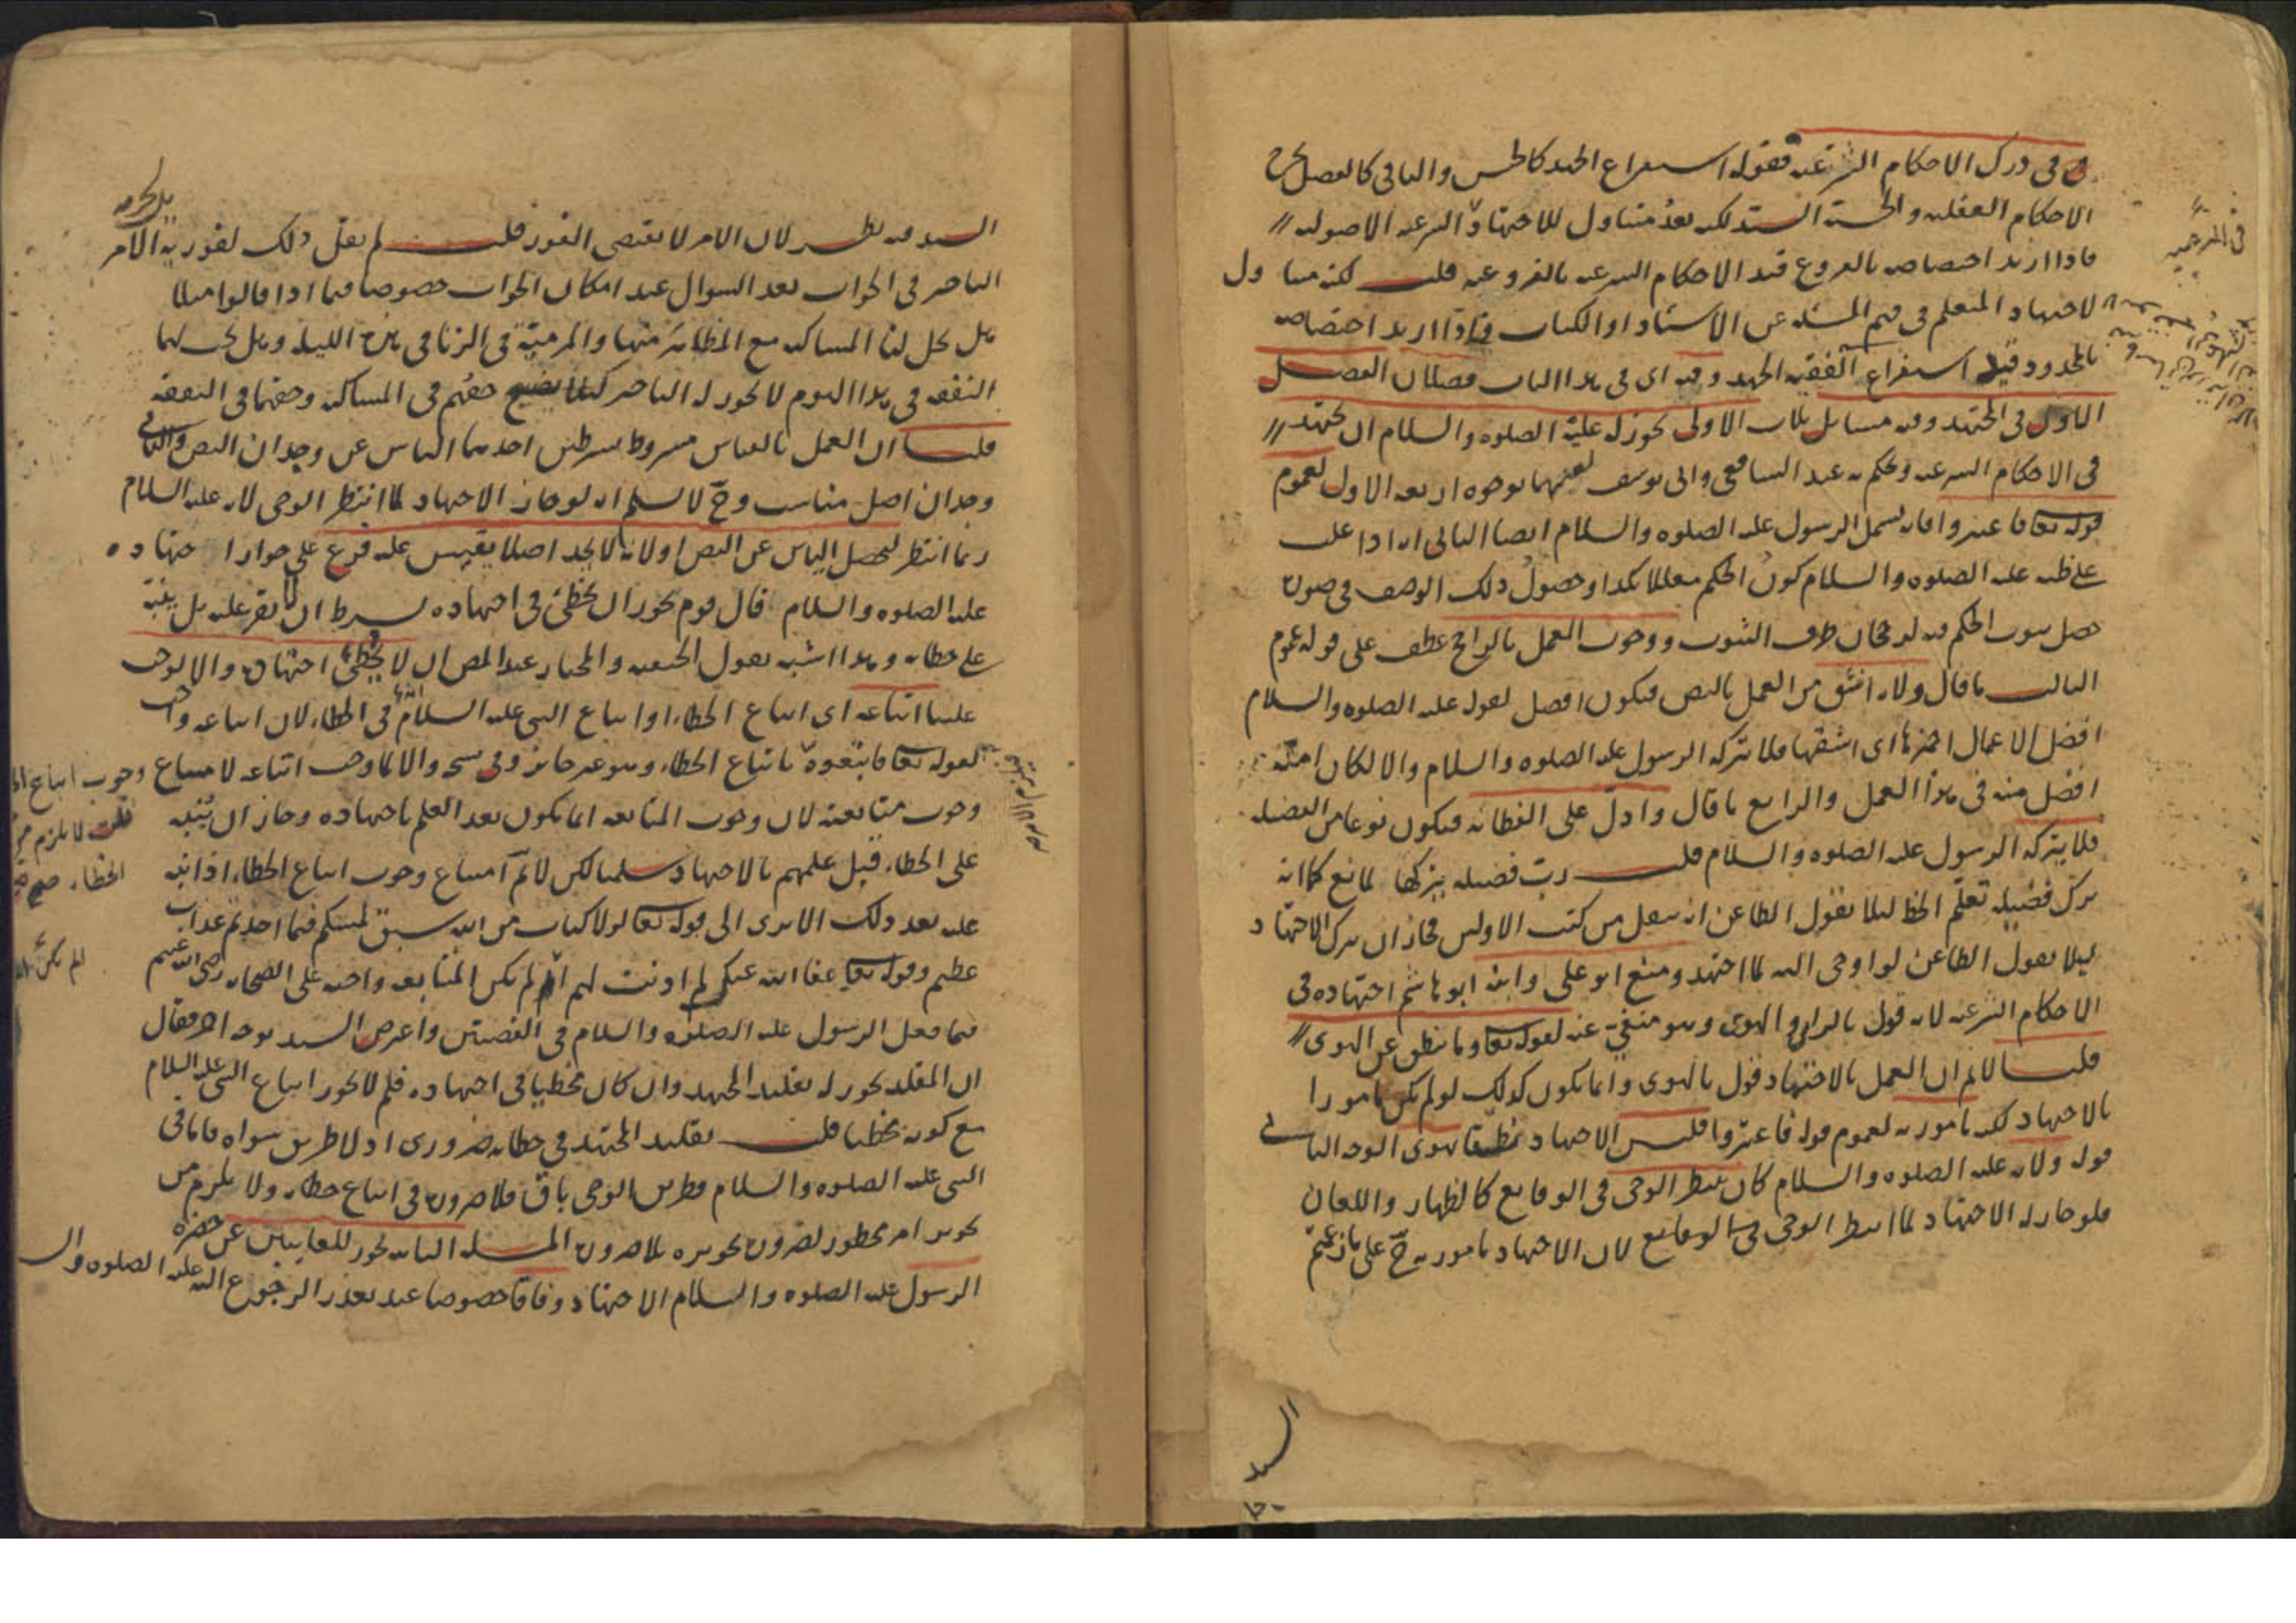 في درك الاحكام الشرعيه فقوله استفراغ الجهد كالجنس والباقي كالفصل يخرج
الاحكام العقليه والحسية لكنه بعد متناول للاجتهاد في الشرعيه الاصوليه
فاذا اريد اختصاصه بالفروع قيد الاحكام الشرعيه بالفروعيه قلت لكنه متناول
لاجتهاد المتعلم في فهم المسئله عن الاستاد او الكتاب فاذا اريد اختصاصه
بالمحدود قيل استفراغ الفقيه الجهد وفيه اى في هذا الباب فصلان الفصل
الاول في المجتهد وفيه مسايل ثلاث الاولى يجوز له عليه الصلوه والسلام ان يجتهد
في الاحكام الشرعيه ويحكم به عند الشافعي وابي يوسف لوجوه اربعه الاول لعموم
قوله تعا فاعتبروا فانه يشمل الرسول عليه الصلوه والسلام ايضا الثاني انه اذا غلب
على ظنه عليه الصلوه والسلام كون الحكم معللا بكذا وحصول ذلك الوصف في صوره
حصل ثبوت الحكم فيه لرجحان طرف الثبوت ووجوب العمل بالراجح عطف على قوله عموم
الثالث ما قال ولانه اشق من العمل بالنص فيكون افضل لقوله عليه الصلوه والسلام
افضل الاعمال احمزها اى اشقها فلا يتركه الرسول عليه الصلوه والسلام والا لكان امته
افضل منه في هذا العمل والرابع ما قال وادل على الفطانه فيكون نوعا من الفضيله
فلا يتركه الرسول عليه الصلوه والسلام قلت رب فضيله يتركها لمانع كما انه
ترك فضيله تعلم الخط ليلا يقول الطاعن انه ينقل من كتب الاولين فجاز ان يترك الاجتهاد
ليلا يقول الطاعن لو اوحى اليه لما اجتهد ومنع ابو على وابنه ابو هاشم اجتهاده في
الاحكام الشرعيه لانه قول بالراى والهوى وهو منفي عنه لقوله تعا وما ينطق عن الهوى
قلنا لا نم ان العمل بالاجتهاد قول بالهوى وانما يكون كذلك لو لم يكن مامورا
بالاجتهاد لكنه مامور به لعموم قوله فاعتبروا فليس الاجتهاد نطقا بهوى الوجه الثاني
قوله ولانه عليه الصلوه والسلام كان ينتظر الوحى في الوقايع كالظهار واللعان
فلو جاز له الاجتهاد لما انتظر الوحى في الوقايع لان الاجتهاد مامور به ح على ما زعمتم
السيد
السيد فيه نظر لان الامر لا يقتضى الفور قلت لم يقل ذلك لفورية الامر
التاخير في الجواب بعد السوال عند امكان الجواب خصوصا فيما اذا قالوا مثلا
هل يحل لنا المساكنه مع المظاهر منها والمرمية في الزنا في هذه الليله وهل يجب لهما
النفقه في هذا اليوم لا يجوز له التاخير كيلا يضيع حقهم في المساكنه وحقها في النفقه
قلنا ان العمل بالقياس مشروط بشرطين احدهما الياس عن وجدان النص والثاني
وجدان اصل مناسب وح لا نسلم انه لو جاز الاجتهاد لما انتظر الوحى لانه عليه السلام
ربما انتظر ليحصل الياس عن النص او لانه لا يجد اصلا يقيس عليه فرع على جواز اجتهاده
عليه الصلوه والسلام قال قوم يجوز ان يخطئ في اجتهاده بشرط ان لا يقر عليه بل ينبه
على خطائه وهذا اشبه بقول الحنفيه والمختار عند المص ان لا يخطئ اجتهاده والا لوجب
علينا اتباعه اى اتباع الخطاء او اتباع النبي عليه السلام في الخطاء لان اتباعه واجب
لقوله تعا فاتبعوه باتباع الخطاء وهو غير جايز وفي نسخه والا لما وجب اتباعه لامتناع وجوب اتباع الخطاء
وجوب متابعته لان وجوب المتابعه انما يكون بعد العلم باجتهاده وجاز ان ينبه
على الخطاء قبل علمهم بالاجتهاد سلمنا لكن لا نم امتناع وجوب اتباع الخطاء اذا نبه
عليه بعد ذلك الا ترى الى قوله تعا لولا كتاب من الله سبق لمسكم فيما اخذتم عذاب
عظيم وقوله تعا عفا الله عنكم لم اذنت لهم الم يكن المتابعه واجبه على الصحابه رضى الله عنهم
فيما فعل الرسول عليه الصلوه والسلام في القضيتين واعترض السيد بوجه اخر فقال
ان المقلد يجوز له تقليد المجتهد وان كان مخطيا في اجتهاده فلم لا يجوز اتباع النبي عليه السلام
مع كونه مخطيا قلت تقليد المجتهد في خطائه ضرورى اذ لا طريق سواه واما في
النبي عليه الصلوه والسلام فطريق الوحى باق فلا ضروره في اتباع خطائه ولا يلزم من
تجويز امر محظور لضروره تجويزه بلا ضروره المسئله الثانيه يجوز للغايبين عن حضره
الرسول عليه الصلوه والسلام الاجتهاد وفاقا خصوصا عند تعذر الرجوع اليه عليه الصلوه والسلام